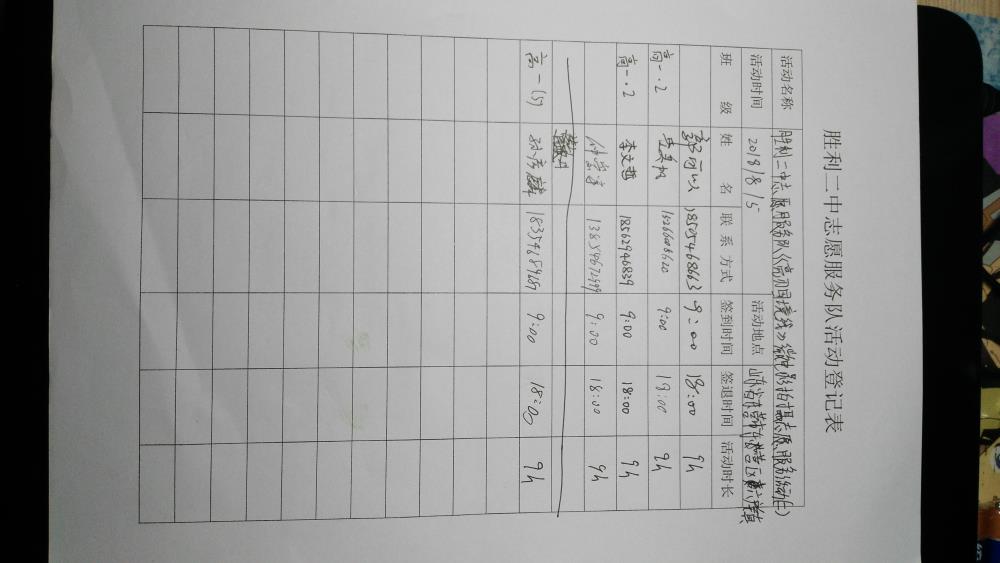 胜利二中志愿服务队活动登记表
活动名称 胜利二中志愿服务队《高用国境线》微电影拍摄志愿服务活动
活动时间 2018/8/5 活动地点 山东省东营市东营区
班 级 姓 名 联系方式 签到时间 签退时间 活动时长
郭可以 18505468663 9:00 18:00 9h
高一.2 9:00 18:00 9h
高一.2 李文哲 18562946839 9:00 18:00 9h
13854672999 9:00 18:00 9h
高一(5) 18354689689 9:00 18:00 9h